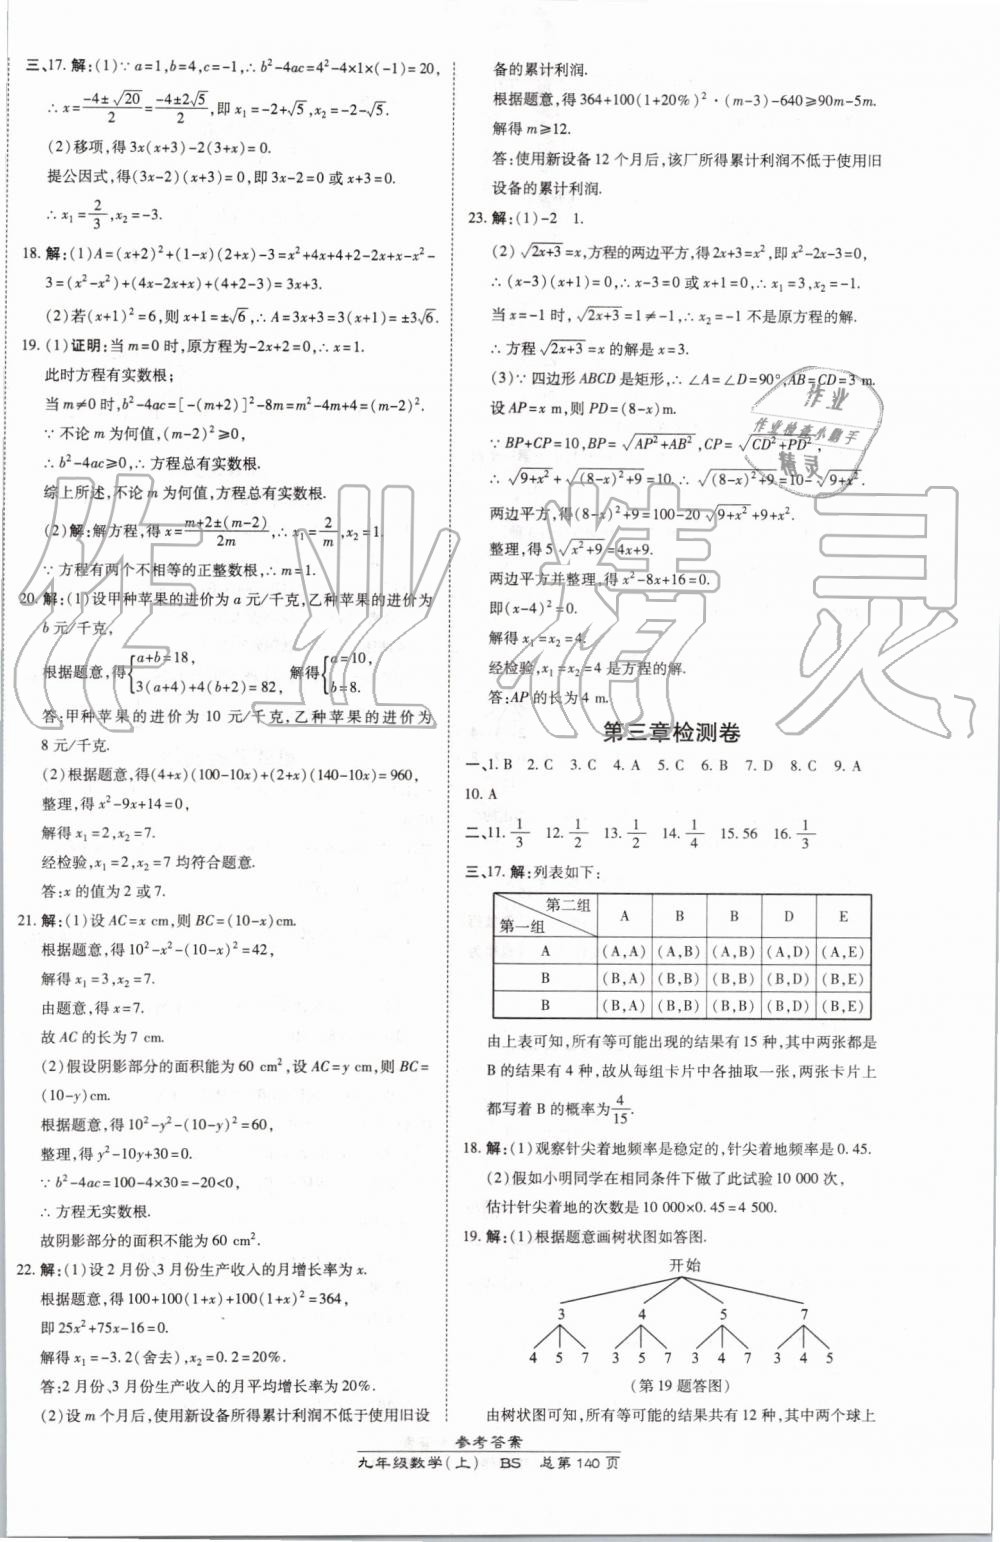 三、17. 解:(1)∵a=1,b=4,c=-1,∴b²-4ac=4²-4×1×(-1)=20,
∴x=(-4±√20)/2=(-4±2√5)/2,即x₁=-2+√5,x₂=-2-√5.
(2)移项,得3x(x+3)-2(3+x)=0.
提公因式,得(3x-2)(x+3)=0,即3x-2=0或x+3=0.
∴x₁=2/3,x₂=-3.
18. 解:(1)A=(x+2)²+(1-x)(2+x)-3=x²+4x+4+2-2x+x-x²-
3=(x²-x²)+(4x-2x+x)+(4+2-3)=3x+3.
(2)若(x+1)²=6,则x+1=±√6,∴A=3x+3=3(x+1)=±3√6.
19. (1)证明:当m=0时,原方程为-2x+2=0,∴x=1.
此时方程有实数根;
当m≠0时,b²-4ac=[-(m+2)]²-8m=m²-4m+4=(m-2)².
∵不论m为何值,(m-2)²≥0,
∴b²-4ac≥0,∴方程总有实数根.
综上所述,不论m为何值,方程总有实数根.
(2)解:解方程,得x=(m+2±(m-2))/2m,∴x₁=2/m,x₂=1.
∵方程有两个不相等的正整数根,∴m=1.
20. 解:(1)设甲种苹果的进价为a元/千克,乙种苹果的进价为
b元/千克,
根据题意,得{a+b=18, 3(a+4)+4(b+2)=82, 解得{a=10, b=8.
答:甲种苹果的进价为10元/千克,乙种苹果的进价为
8元/千克.
(2)根据题意,得(4+x)(100-10x)+(2+x)(140-10x)=960,
整理,得x²-9x+14=0,
解得x₁=2,x₂=7.
经检验,x₁=2,x₂=7均符合题意.
答:x的值为2或7.
21. 解:(1)设AC=x cm,则BC=(10-x)cm.
根据题意,得10²-x²-(10-x)²=42,
解得x₁=3,x₂=7.
由题意,得x=7.
故AC的长为7 cm.
(2)假设阴影部分的面积能为60 cm²,设AC=y cm,则BC=
(10-y)cm.
根据题意,得10²-y²-(10-y)²=60,
整理,得y²-10y+30=0.
∵b²-4ac=100-4×30=-20<0,
∴方程无实数根.
故阴影部分的面积不能为60 cm².
22. 解:(1)设2月份、3月份生产收入的月增长率为x.
根据题意,得100+100(1+x)+100(1+x)²=364,
即25x²+75x-16=0.
解得x₁=-3.2(舍去),x₂=0.2=20%.
答:2月份、3月份生产收入的月平均增长率为20%.
(2)设m个月后,使用新设备所得累计利润不低于使用旧设
备的累计利润.
根据题意,得364+100(1+20%)²·(m-3)-640≥90m-5m.
解得m≥12.
答:使用新设备12个月后,该厂所得累计利润不低于使用旧
设备的累计利润.
23. 解:(1)-2 1.
(2)√(2x+3)=x,方程的两边平方,得2x+3=x²,即x²-2x-3=0,
∴(x-3)(x+1)=0,∴x-3=0或x+1=0,∴x₁=3,x₂=-1.
当x=-1时,√(2x+3)=1≠-1,∴x₂=-1不是原方程的解.
∴方程√(2x+3)=x的解是x=3.
(3)∵四边形ABCD是矩形,∴∠A=∠D=90°,AB=CD=3 m.
设AP=x m,则PD=(8-x)m.
∵BP+CP=10,BP=√(AP²+AB²),CP=√(CD²+PD²),
∴√(9+x²)+√((8-x)²+9)=10.∴√((8-x)²+9)=10-√(9+x²).
两边平方,得(8-x)²+9=100-20√(9+x²)+9+x².
整理,得5√(x²+9)=4x+9.
两边平方并整理,得x²-8x+16=0.
即(x-4)²=0.
解得x₁=x₂=4.
经检验,x₁=x₂=4是方程的解.
答:AP的长为4 m.
第三章检测卷
一、1. B 2. C 3. C 4. A 5. C 6. B 7. D 8. C 9. A
10. A
二、11. 1/3 12. 1/2 13. 1/2 14. 1/4 15. 56 16. 1/3
三、17. 解:列表如下:
第二组 第一组 A B B D E
A (A,A) (A,B) (A,B) (A,D) (A,E)
B (B,A) (B,B) (B,B) (B,D) (B,E)
B (B,A) (B,B) (B,B) (B,D) (B,E)
由上表可知,所有等可能出现的结果有15种,其中两张都是
B的结果有4种,故从每组卡片中各抽取一张,两张卡片上
都写着B的概率为4/15.
18. 解:(1)观察针尖着地频率是稳定的,针尖着地频率是0.45.
(2)假如小明同学在相同条件下做了此试验10 000次,
估计针尖着地的次数是10 000×0.45=4 500.
19. 解:(1)根据题意画树状图如答图.
开始
3 4 5 7
4 5 7 3 5 7 3 4 7 3 4 5
(第19题答图)
由树状图可知,所有等可能的结果共有12种,其中两个球上
参考答案
九年级数学(上) BS 总第140页
作业
作业检查小助手
精灵
作业精灵